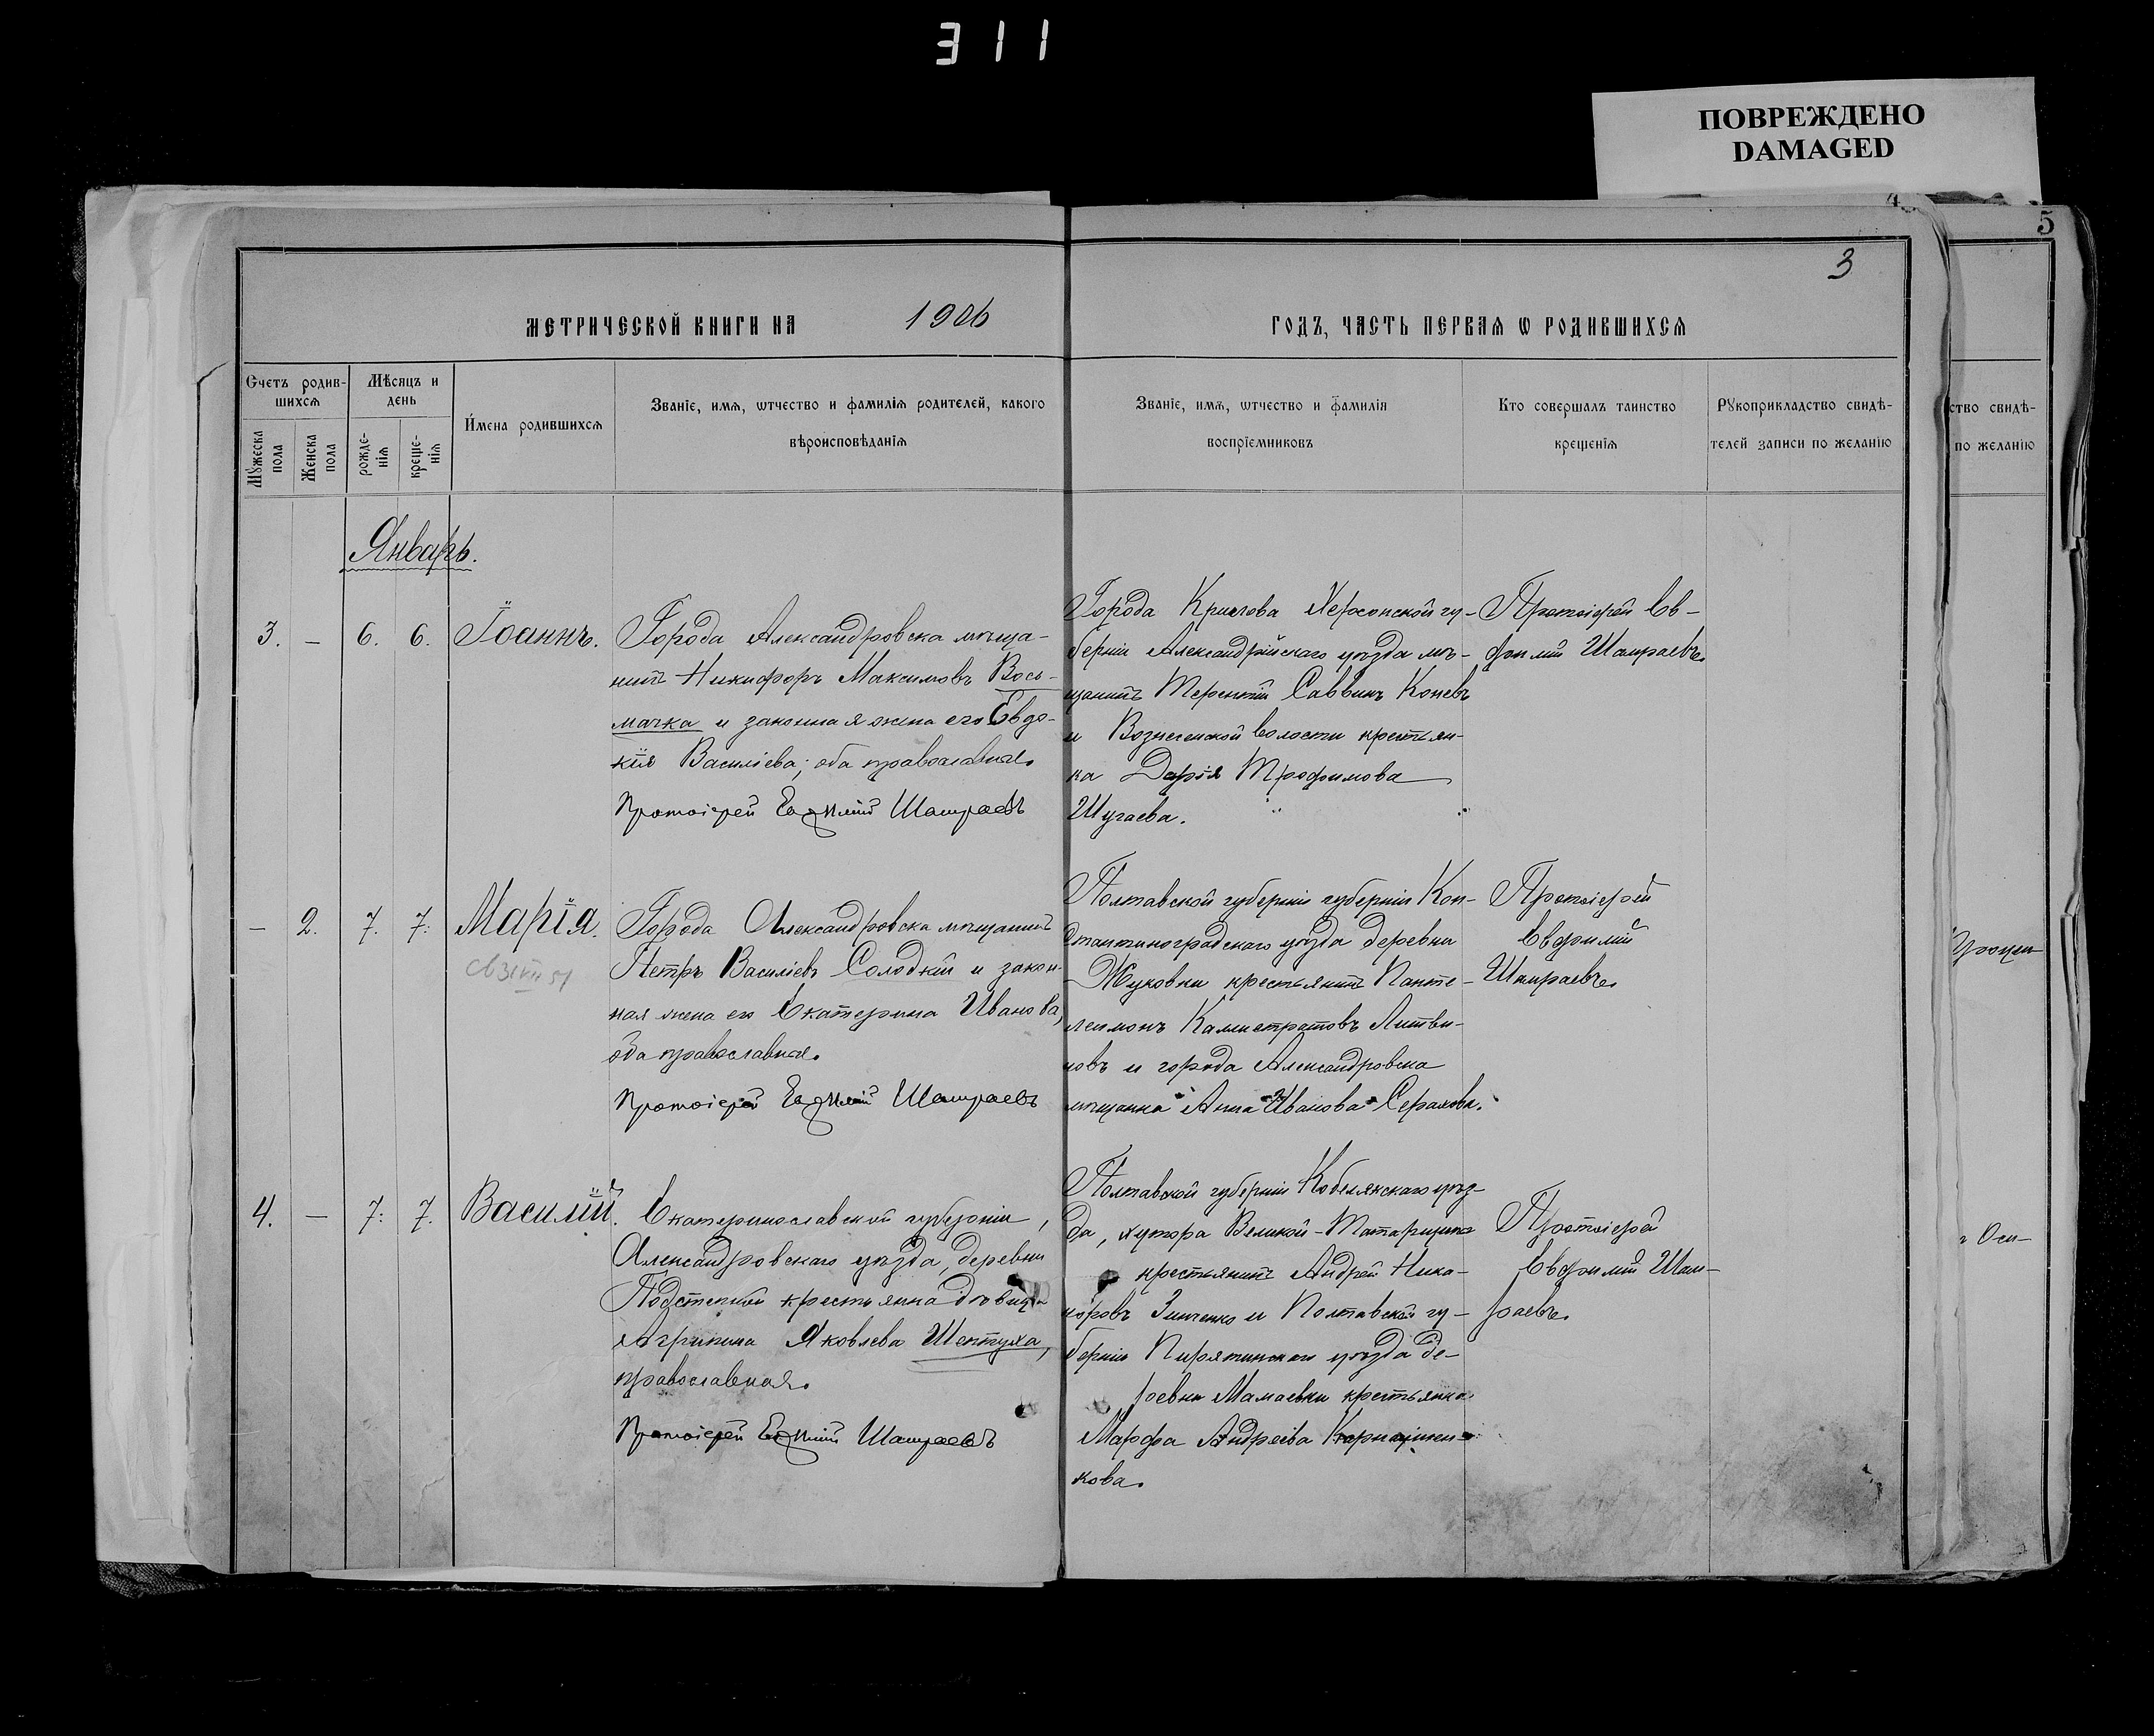 311
ПОВРЕЖДЕНО
DAMAGED
5
3
МЕТРИЧЕСКОЙ КНИГИ НА 1906
ГОДЪ, ЧАСТЬ ПЕРВАѦ Ѡ РОДИВШИХСѦ
Счетъ родив-
шихсѧ
Мѣсяцъ и
день
Мꙋжеска
пола
Женска
пола
рожде-
нїѧ
креще-
нїѧ
Имена родившихсѧ
Званїе, имѧ, ѡтчество и фамилїѧ родителей, какого
вѣроисповѣданїѧ
Званїе, имѧ, ѡтчество и фамилїѧ
воспрїемниковъ
Кто совершалъ таинство
крещенїѧ
Рꙋкоприкладство свидѣ-
телей записи по желанїю
ство свидѣ-
по желанїю
Январь.
3. – 6. 6. Іоаннъ.
Города Александровска мѣща-
нинъ Никифоръ Максимовъ Вось-
мачка и законная жена его Евдо-
кія Василіева; оба православные.
Протоіерей Евѳимій Шамраевъ
Города Крылова Херсонской гу-
берніи Александрійскаго уѣзда мѣ-
щанинъ Терентій Саввинъ Коневъ
и Вознесенской волости крестьян-
ка Дарія Трофимова
Шугаева.
Протоіерей Ев-
фимій Шамраевъ.
– 2. 7. 7. Марія.
Города Александровска мѣщанинъ
Петръ Василіевъ Солодкій и закон-
ная жена его Екатерина Иванова,
оба православные.
Протоіерей Евѳимій Шамраевъ
Полтавской губерніи губерніи Кон-
стантиноградскаго уѣзда деревни
Жуковки крестьянинъ Панте-
леимонъ Каллистратовъ Литви-
новъ и города Александровска
мѣщанка Анна Иванова
Протоіерей
Евфимій
Шамраевъ.
4. – 7. 7. Василій.
Екатеринославской губерніи,
Александровскаго уѣзда, деревни
Подстепной крестьянка дѣвица
Агрипина Яковлева Шептуха,
православная.
Протоіерей Евѳимій Шамраевъ
Полтавской губерніи Кобелякскаго уѣз-
да, хутора Великой-
крестьянинъ Андрей Ника-
норовъ Зинченко и Полтавской гу-
берніи Пирятинскаго уѣзда де-
ревни Мамаевки крестьянка
Марфа Андреева
кова.
Протоіерей
Евфимій Шам-
раевъ.